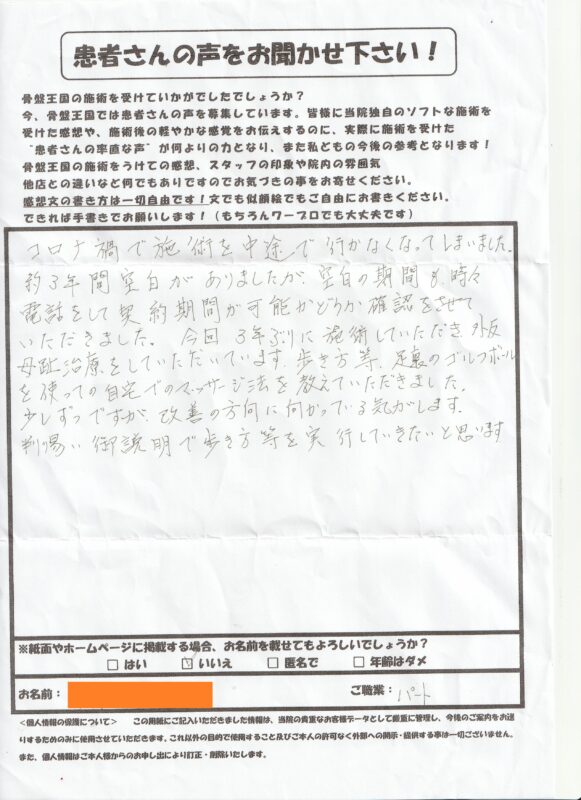 患者さんの声をお聞かせ下さい！
骨盤王国の施術を受けていかがでしたでしょうか？
今、骨盤王国では患者さんの声を募集しています。皆様に当院独自のソフトな施術を
受けた感想や、施術後の軽やかな感覚をお伝えするのに、実際に施術を受けた
“患者さんの率直な声”が何よりの力となり、また私どもの今後の参考となります！
骨盤王国の施術をうけての感想、スタッフの印象や院内の雰囲気
他店との違いなど何でもありですのでお気づきの事をお寄せください。
感想文の書き方は一切自由です！文でも似顔絵でもご自由にお書きください。
できれば手書きでお願いします！（もちろんワープロでも大丈夫です）
コロナ禍で施術を中途で行かなくなってしまいました。
約3年間空白がありましたが、空白の期間も、時々
電話をして契約期間が可能かどうか確認をさせて
いただきました。今回3年ぶりに施術していただき、外反
母趾治療をしていただいています。歩き方等、足裏のゴルフボール
を使っての自宅でのマッサージ法を教えていただきました。
少しずつですが、改善の方向に向かっている気がします。
判り易い御説明で歩き方等を実行していきたいと思います
※紙面やホームページに掲載する場合、お名前を載せてもよろしいでしょうか？
□ はい ☑ いいえ □ 匿名で □ 年齢はダメ
お名前： ご職業：パート
<個人情報の保護について> この用紙にご記入いただきました情報は、当院の貴重なお客様データとして厳重に管理し、今後のご案内をお送
りするためのみに使用させていただきます。これ以外の目的で使用すること及びご本人の許可なく外部への開示・提供する事は一切ございません。
また、個人情報はご本人様からのお申し出により訂正・削除いたします。